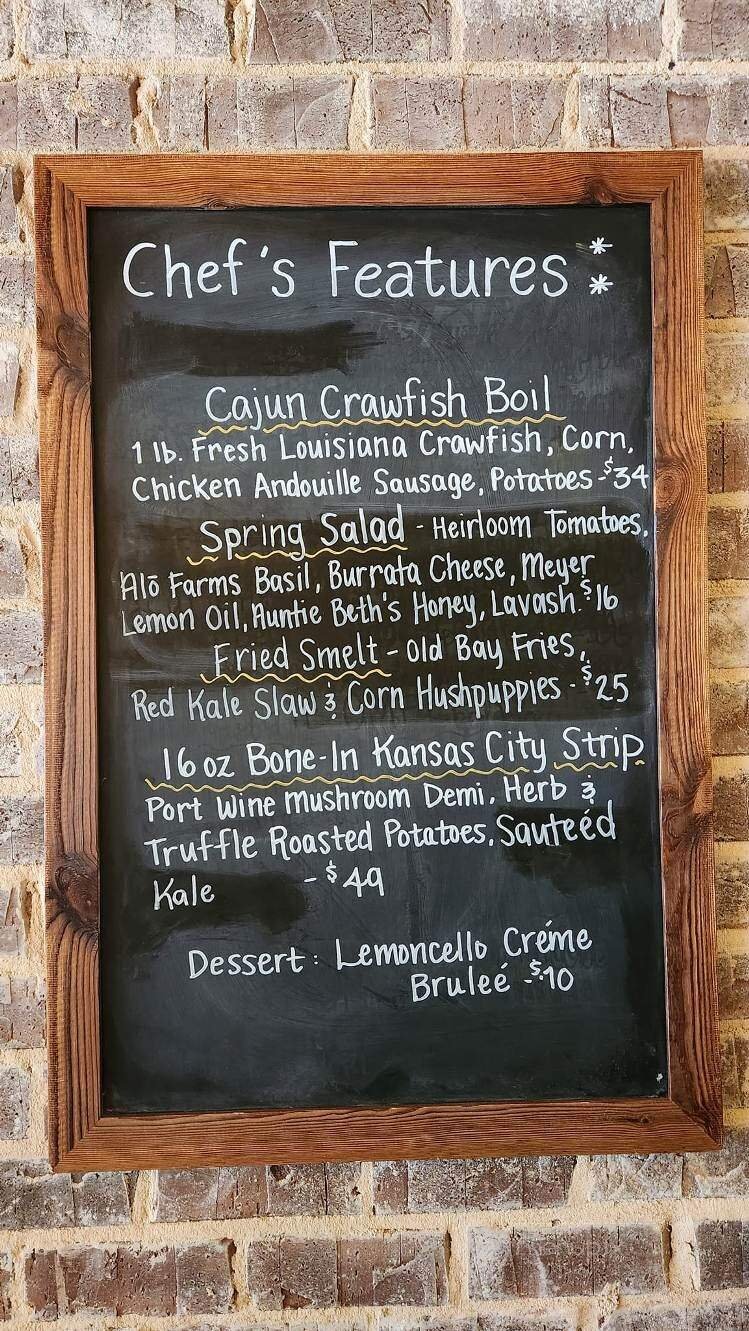 Chef's Features **
Cajun Crawfish Boil
1 lb. Fresh Louisiana Crawfish, Corn,
Chicken Andouille Sausage, Potatoes - $34
Spring Salad - Heirloom Tomatoes,
Alō Farms Basil, Burrata Cheese, Meyer
Lemon Oil, Auntie Beth's Honey, Lavash. $16
Fried Smelt - Old Bay Fries,
Red Kale Slaw & Corn Hushpuppies - $25
16 oz Bone-In Kansas City Strip
Port Wine Mushroom Demi, Herb &
Truffle Roasted Potatoes, Sauteéd
Kale - $49
Dessert: Lemoncello Créme
Bruleé - $10